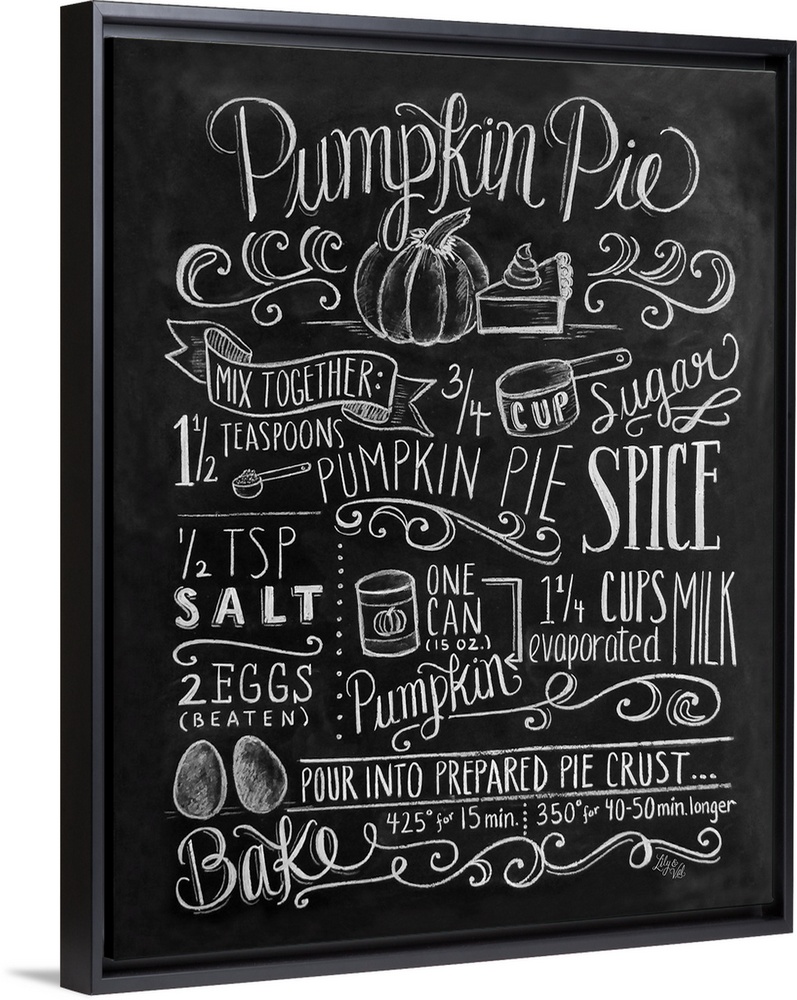 Pumpkin Pie
MIX TOGETHER:
3/4 CUP Sugar
1 1/2 TEASPOONS
PUMPKIN PIE SPICE
1/2 TSP
SALT
2 EGGS
(BEATEN)
ONE
CAN
(15 OZ.)
Pumpkin
1 1/4 CUPS
evaporated
MILK
POUR INTO PREPARED PIE CRUST...
Bake
425° for 15 min. 350° for 40-50 min. longer
Lily & Val